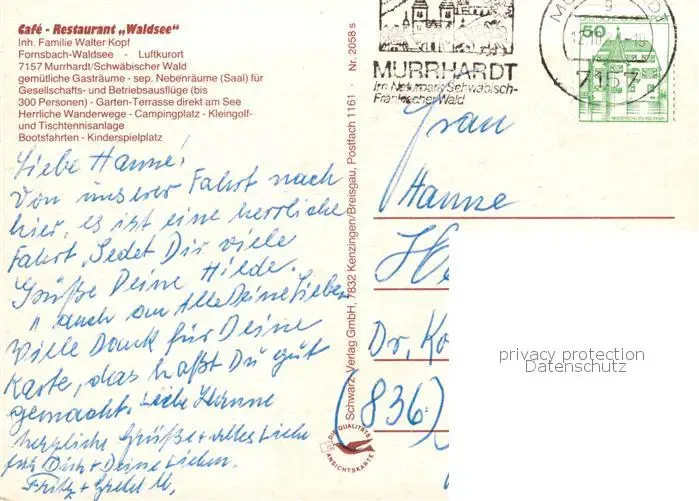 Café - Restaurant „Waldsee"
Inh. Familie Walter Kopf
Fornsbach-Waldsee - Luftkurort
7157 Murrhardt/Schwäbischer Wald
gemütliche Gasträume - sep. Nebenräume (Saal) für
Gesellschafts- und Betriebsausflüge (bis
300 Personen) - Garten-Terrasse direkt am See
Herrliche Wanderwege - Campingplatz - Kleingolf-
und Tischtennisanlage
Bootsfahrten - Kinderspielplatz
Liebe Hanne!
Von unserer Fahrt nach
hier, es ist eine herrliche
Fahrt, Sedet Dir viele
Grüße Deine Hilde.
" auch an Alle Deine Lieben
Viele Dank für Deine
Karte, das haßt Du gut
gemacht. Liebe Hanne
herzliche Grüße + alles Liebe
für Dich + Deine Lieben.
Fritz +
Schwarz-Verlag GmbH, 7832 Kenzingen/Breisgau, Postfach 1161 - Nr. 2058 s
DIE QUALITÄTS
ANSICHTSKARTE
MURRHARDT
Im Naturpark Schwäbisch-
Fränkischer Wald
7157
50
Frau
Hanne
Dr.
(836)
privacy protection
Datenschutz